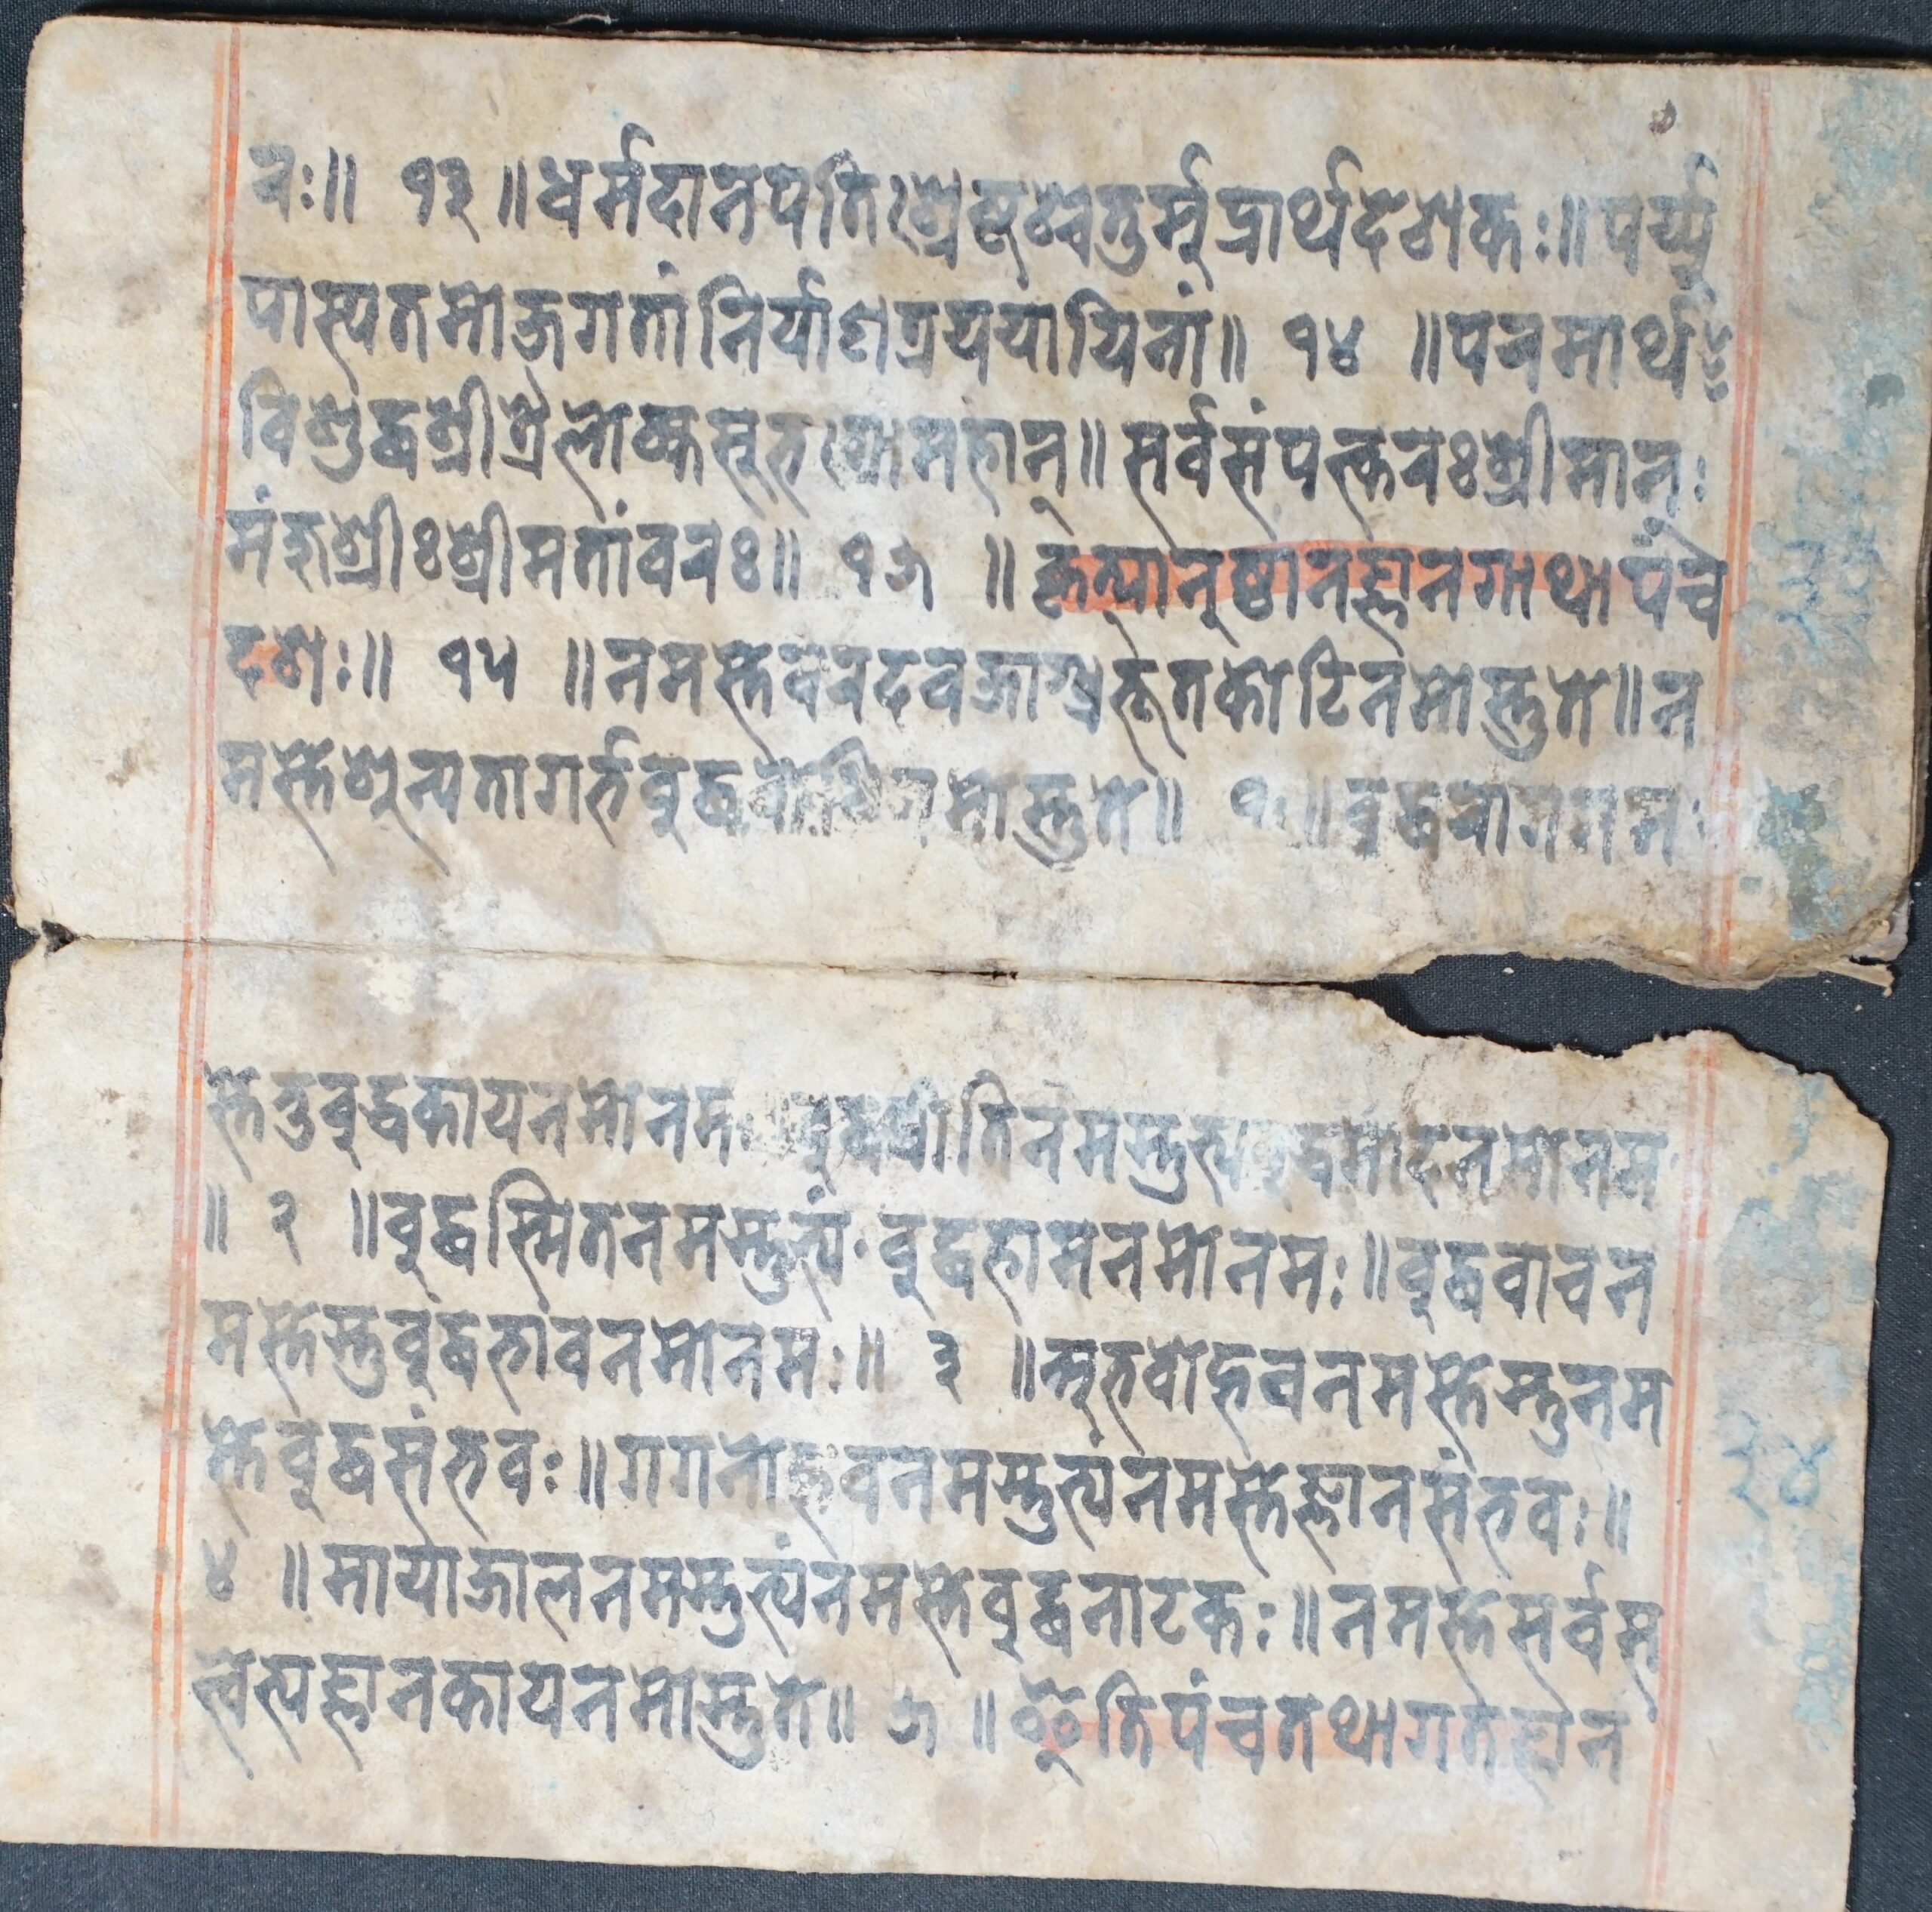 रः॥ १३ ॥धर्मदानपतिःश्रेष्ठश्चतुर्मुद्रार्थदेशकः॥पर्य्यु
पास्यतमोजगतांनिर्याणत्रययायिनां॥ १४ ॥परमार्थः
विशुद्धश्रीत्रैलोक्यसुभगोमहान्॥सर्वसंपत्करःश्रीमान्ः
मंजुश्रीःश्रीमतांवरः॥ १५ ॥कृत्यानुष्ठानज्ञानगाथापंच
दशः॥ १५ ॥नमस्तेवरदवज्राग्रभूतकोटिनमोस्तुते॥न
मस्तेशून्यतागर्भबुद्धबोधिनमोस्तुते॥ १ ॥बुद्धरागनम
स्तेतुबुद्धकायनमोनमः बुद्धप्रीतिनमस्तुत्यंबुद्धमोदनमोनमः
॥ २ ॥बुद्धस्मितनमस्तुत्यं·बुद्धहासनमोनमः॥बुद्धवाचन
मस्तेस्तुबुद्धभावनमोनमः॥ ३ ॥अभवोद्भवनमस्तेस्तुनम
स्तेबुद्धसंभवः॥गगनोद्भवनमस्तुत्यंनमस्तेज्ञानसंभवः॥
४ ॥मायाजालनमस्तुत्यंनमस्तेबुद्धनाटकः॥नमस्तेसर्वस
र्वेत्यज्ञानकायनमोस्तुते॥ ५ ॥इतिपंचतथागतज्ञान
३४